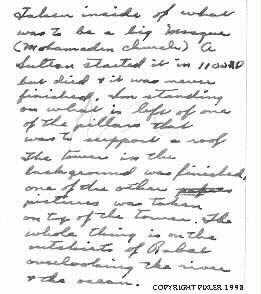 Taken inside of what
was to be a big Mosque
(Mohamaden church) A
Sultan started it in 1100 AD
but died & it was never
finished. Im standing
on what is left of one
of the pillars that
was to support a roof
The tower in the
background was finished,
one of the other
pictures was taken
on top of the tower. The
whole thing is on the
outskirts of Rabat
overlooking the river
& the ocean.
COPYRIGHT PIXLER 1998